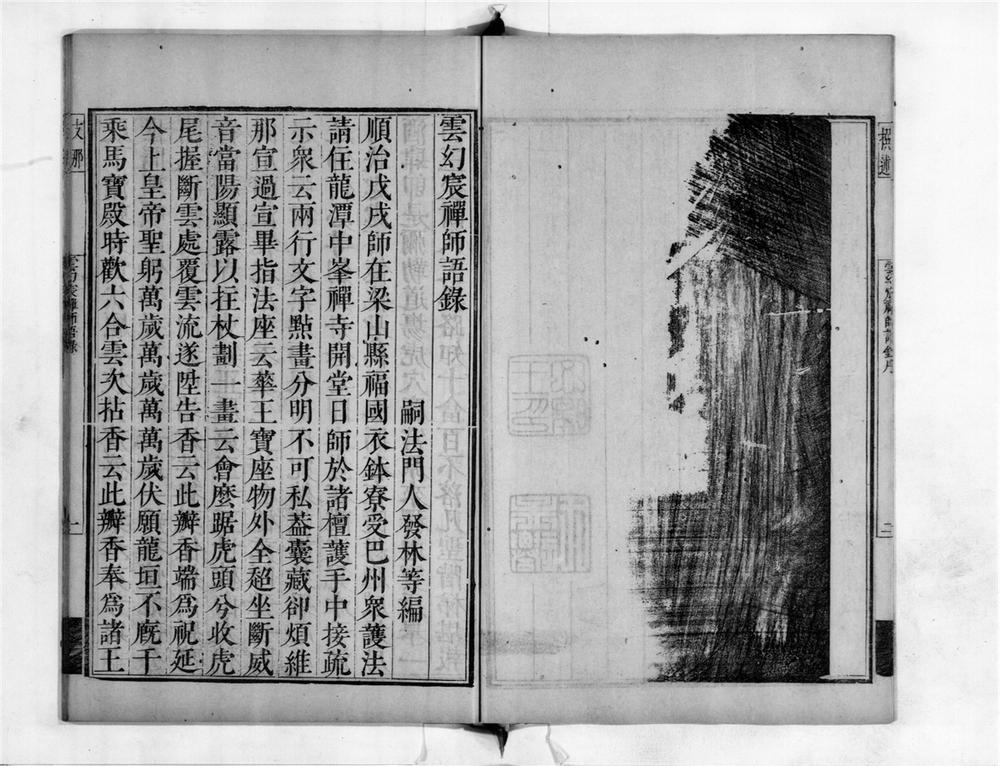 撰述
二
雲幻宸禪師語錄
嗣法門人發林等編
順治戊戌師在梁山縣福國衣鉢寮受巴州衆護法
請住龍潭中峯禪寺開堂日師於諸檀護手中接疏
示衆云兩行文字點畫分明不可私葢囊藏卻煩維
那宣過宣畢指法座云華王寶座物外全超坐斷威
音當陽顯露以拄杖劃一畫云會麼踞虎頭兮收虎
尾握斷雲處覆雲流遂陞告香云此瓣香端爲祝延
今上皇帝聖躬萬歲萬歲萬萬歲伏願龍垣不廐千
乘馬寶殿時歡六合雲次拈香云此瓣香奉爲諸王
支那
雲幻宸禪師語錄
一